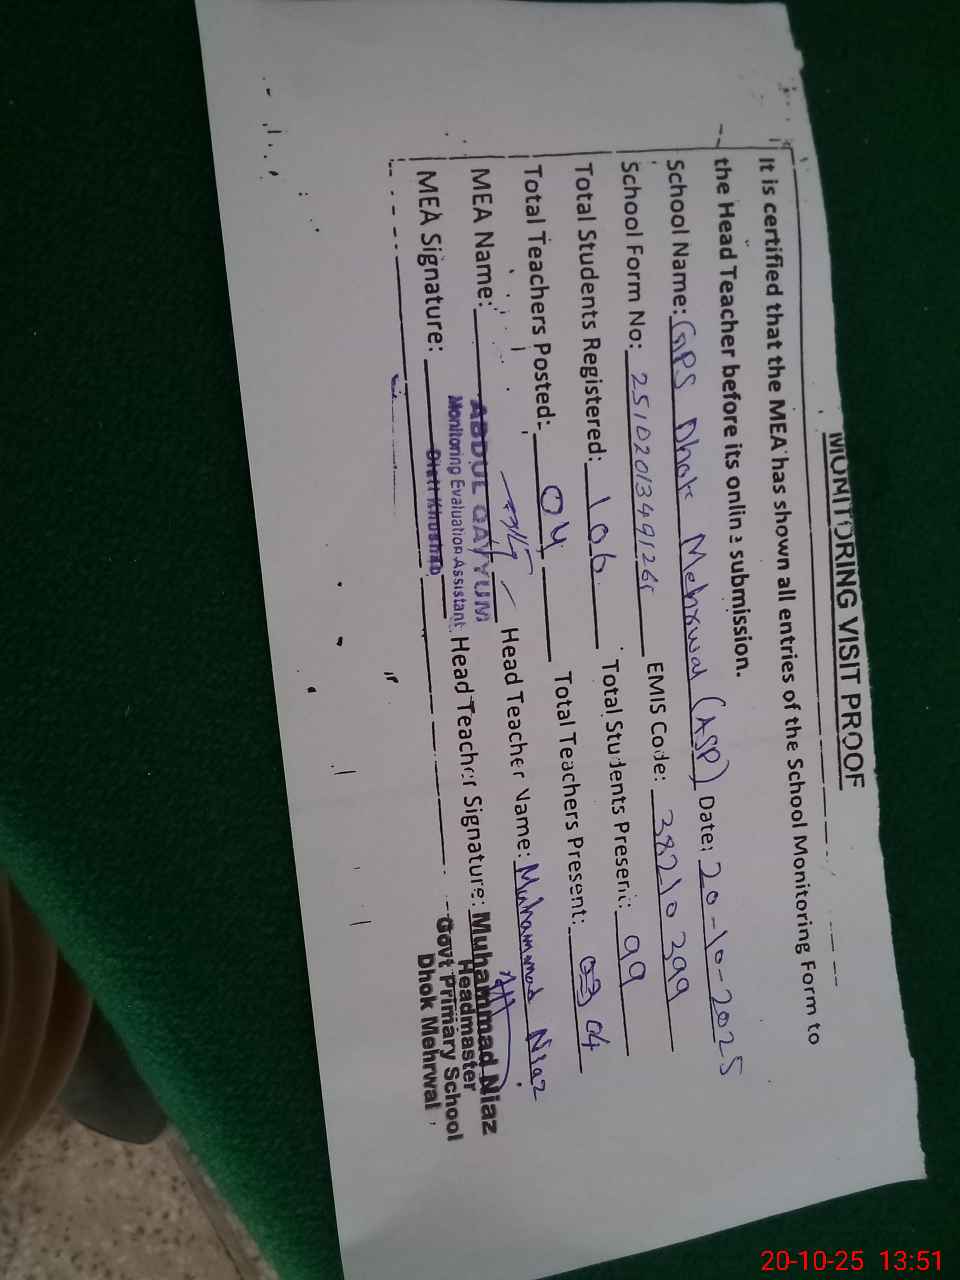 MONITORING VISIT PROOF
It is certified that the MEA has shown all entries of the School Monitoring Form to
the Head Teacher before its online submission.
School Name: GPS Dhok Mehrwal (ASP) Date: 20-10-2025
School Form No: EMIS Code: 38210399
Total Students Registered: 106 Total Students Present: 99
Total Teachers Posted: 04 Total Teachers Present: 03 04
MEA Name: ABDUL QAYYUM Head Teacher Name: Muhammad Niaz
Monitoring Evaluation Assistant
Distt Khushab
MEA Signature: Head Teacher Signature: Muhammad Niaz
Headmaster
Govt Primary School
Dhok Mehrwal
20-10-25 13:51